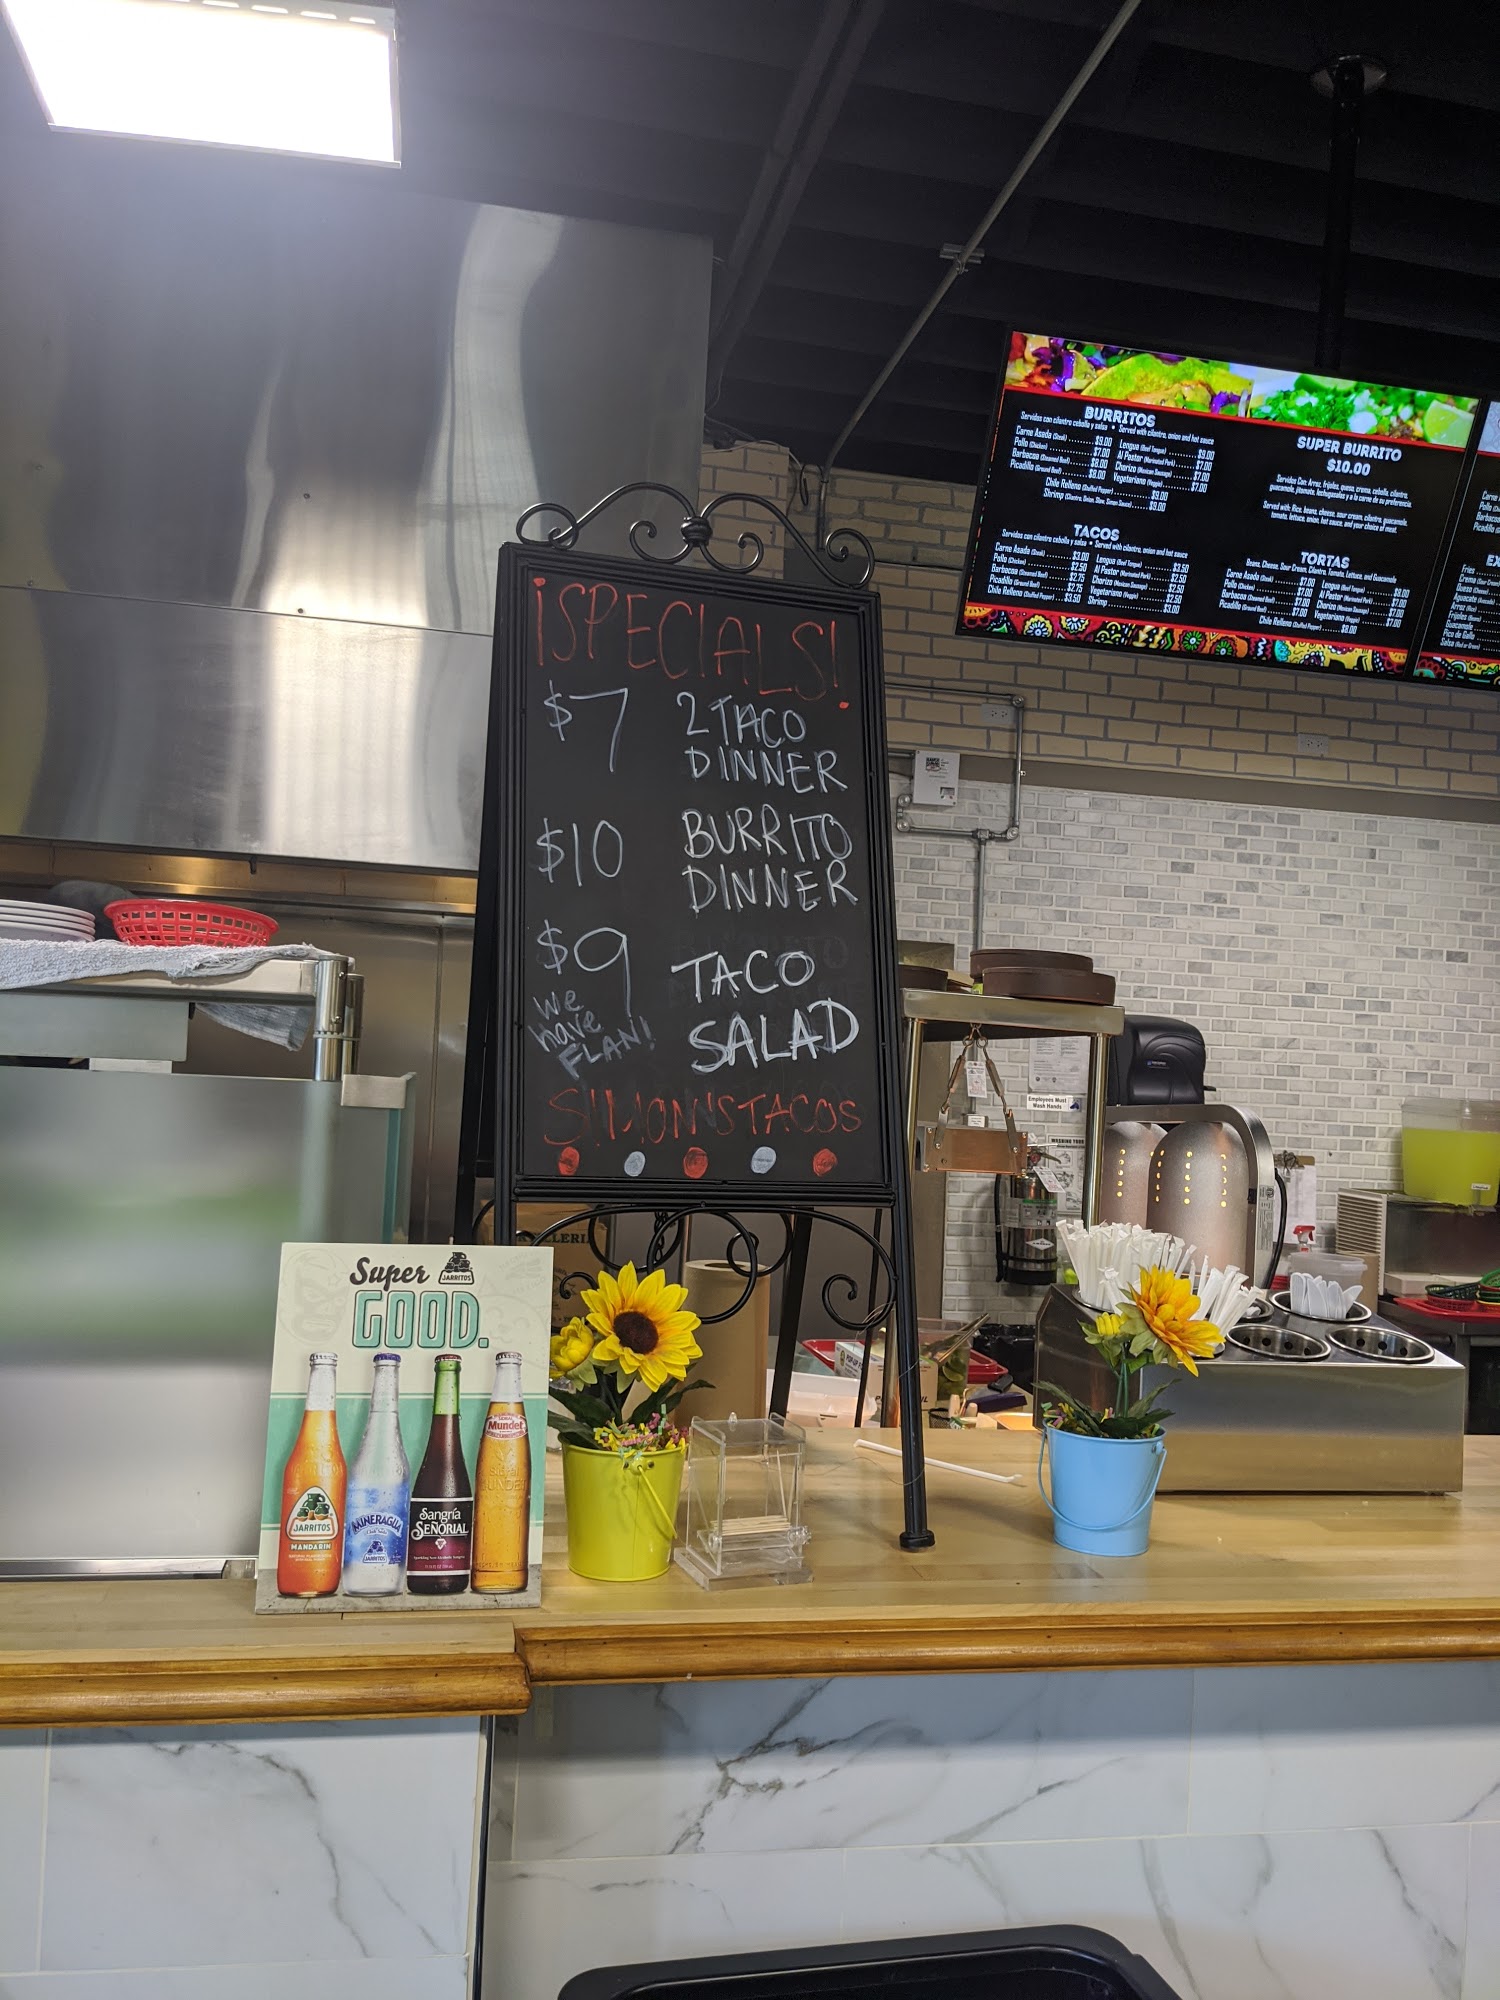 ¡SPECIALS!
$7 2 TACO
DINNER
$10 BURRITO
DINNER
$9 TACO
SALAD
We
have
FLAN!
SIMON'S TACOS
BURRITOS
Servidos con cilantro cebolla y salsa * Served with cilantro, onion and hot sauce
Carne Asada (Steak) $9.00 Lengua (Beef Tongue) $9.00
Pollo (Chicken) $7.00 Al Pastor (Marinated Pork) $7.00
Barbacoa (Steamed Beef) $8.00 Chorizo (Mexican Sausage) $7.00
Picadillo (Ground Beef) $8.00 Vegetariano (Veggie) $7.00
Chile Relleno (Stuffed Pepper) $9.00
Shrimp $9.00
SUPER BURRITO
$10.00
Servidos Con: Arroz, frijoles, queso, crema, cebolla, cilantro,
Served with: Rice, beans, cheese, sour cream, cilantro, guacamole,
tomato, lettuce, onion, hot sauce, and your choice of meat.
TACOS
Servidos con cilantro cebolla y salsa * Served with cilantro, onion and hot sauce
Carne Asada (Steak) $3.00 Lengua (Beef Tongue) $3.50
Pollo (Chicken) $2.50 Al Pastor (Marinated Pork) $2.50
Barbacoa (Steamed Beef) $2.75 Chorizo (Mexican Sausage) $2.50
Picadillo (Ground Beef) $2.75 Vegetariano (Veggie) $2.50
Chile Relleno (Stuffed Pepper) $3.50 Shrimp $3.00
TORTAS
Beans, Cheese, Sour Cream, Cilantro, Tomato, Lettuce, and Guacamole
Carne Asada (Steak) $7.00 Lengua (Beef Tongue) $8.00
Pollo (Chicken) $7.00 Al Pastor (Marinated Pork) $7.00
Barbacoa (Steamed Beef) $7.00 Chorizo (Mexican Sausage) $7.00
Picadillo (Ground Beef) $7.00 Vegetariano (Veggie) $7.00
Chile Relleno (Stuffed Pepper) $8.00
Fries
Crema
Queso
Aguacate
Arroz
Frijoles
Guacamole
Pico de Gallo
Salsa (Red or Green)
Employees Must
Wash Hands
Super JARRITOS
GOOD.
JARRITOS
MANDARIN
MINERAGUA
JARRITOS
Sangría
SEÑORIAL
Mundet